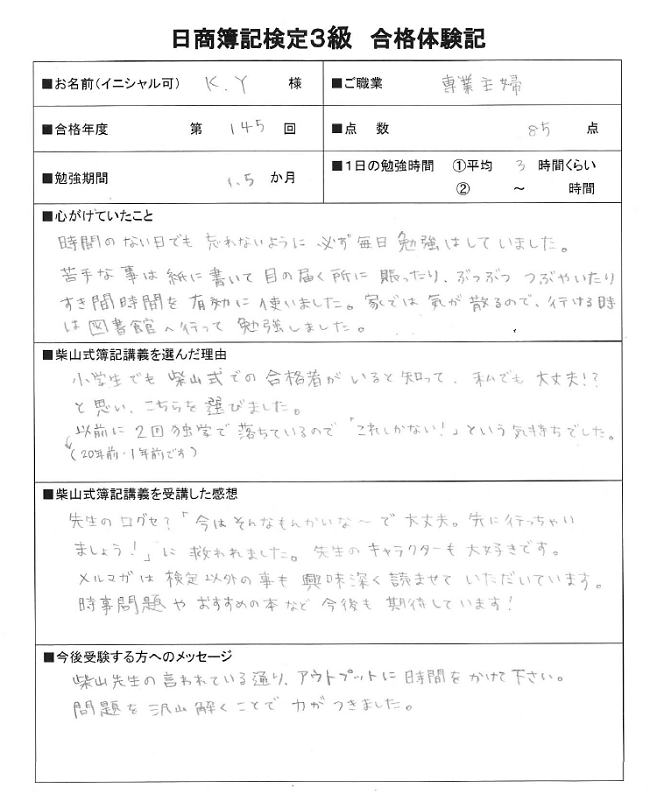 日商簿記検定3級 合格体験記
■お名前(イニシャル可) K.Y 様 ■ご職業 専業主婦
■合格年度 第 145 回 ■点 数 85 点
■勉強期間 1.5 か月 ■1日の勉強時間 ①平均 3 時間くらい
② ～ 時間
■心がけていたこと
時間のない日でも 忘れないように 必ず毎日 勉強はしていました。
苦手な事は紙に書いて 目の届く所に 貼ったり、ぶつぶつ つぶやいたり
すき間時間を 有効に使いました。家では 気が散るので、行ける時
は 図書館へ行って 勉強しました。
■柴山式簿記講義を選んだ理由
小学生でも 柴山式での 合格者がいると知って、私でも 大丈夫!?
と思い、こちらを 選びました。
以前に 2回独学で 落ちているので「これしかない!」という気持ちでした。
(20年前・1年前です)
■柴山式簿記講義を受講した感想
先生の口グセ?「今はそんなもんかいな～で 大丈夫。先に行っちゃい
ましょう!」に 救われました。先生の キャラクターも 大好きです。
メルマガは 検定以外の事も 興味深く 読ませて いただいています。
時事問題や おすすめの本など 今後も 期待しています!
■今後受験する方へのメッセージ
柴山先生の 言われている通り、アウトプットに 時間をかけて下さい。
問題を 沢山 解くことで 力がつきました。